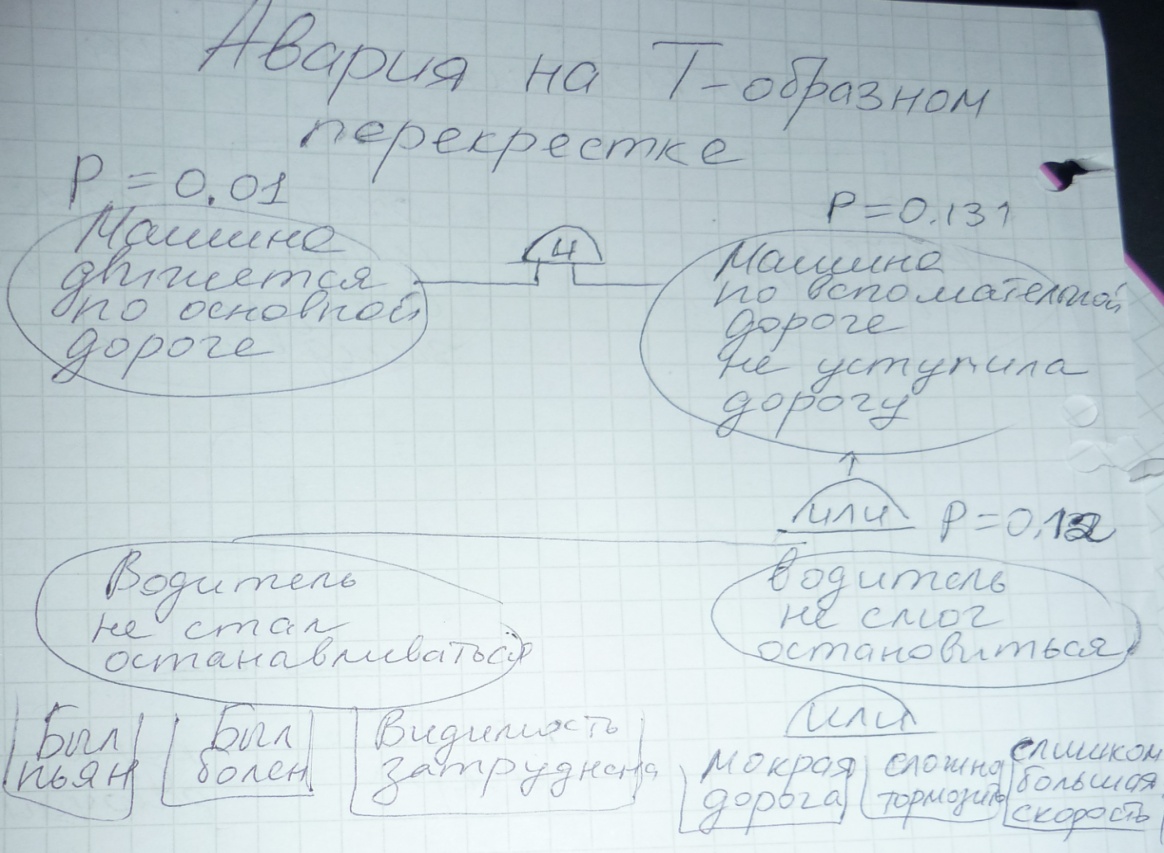 Авария на Т-образном
перекрестке
P = 0.01
P=0.131
Машина
движется
по основной
дороге
И
Машина
по вспомательной
дороге
не уступила
дорогу
или
P=0.12
Водитель
не стал
останавливаться
Водитель
не смог
остановиться
или
Был
пьян
Был
болен
Видимость
затруднена
мокрая
дорога
сложно
тормозить
слишком
большая
скорость